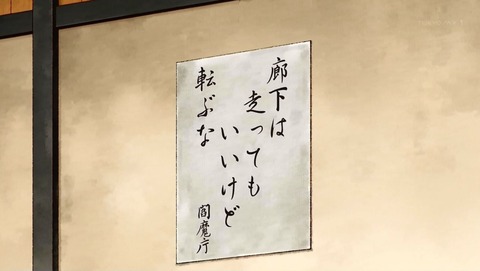 廊下は
走っても
いいけど
転ぶな
閻魔庁